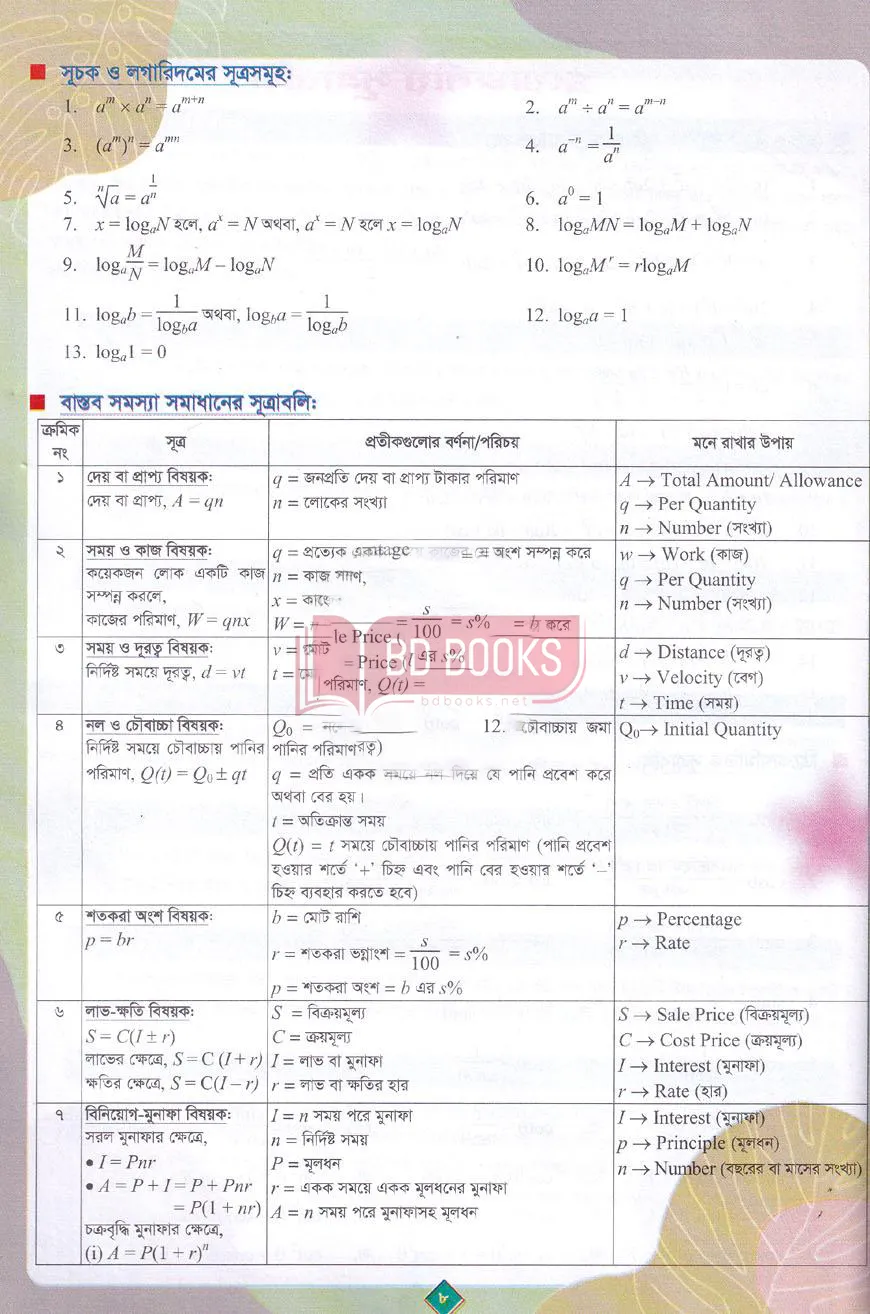 সূচক ও লগারিদমের সূত্রসমূহঃ
1. aᵐ × aⁿ = aᵐ⁺ⁿ
2. aᵐ ÷ aⁿ = aᵐ⁻ⁿ
3. (aᵐ)ⁿ = aᵐⁿ
4. a⁻ⁿ = 1/aⁿ
5. ⁿ√a = a^(1/n)
6. a⁰ = 1
7. x = logₐN হলে, aˣ = N অথবা, aˣ = N হলে x = logₐN
8. logₐMN = logₐM + logₐN
9. logₐ M/N = logₐM – logₐN
10. logₐMʳ = rlogₐM
11. logₐb = 1/log_b a অথবা, log_b a = 1/logₐb
12. logₐa = 1
13. logₐ1 = 0
বাস্তব সমস্যা সমাধানের সূত্রাবলিঃ
ক্রমিক নং
সূত্র
প্রতীকগুলোর বর্ণনা/পরিচয়
মনে রাখার উপায়
১
দেয় বা প্রাপ্য বিষয়কঃ
দেয় বা প্রাপ্য, A = qn
q = জনপ্রতি দেয় বা প্রাপ্য টাকার পরিমাণ
n = লোকের সংখ্যা
A → Total Amount/ Allowance
q → Per Quantity
n → Number (সংখ্যা)
২
সময় ও কাজ বিষয়কঃ
কয়েকজন লোক একটি কাজ
সম্পন্ন করলে,
কাজের পরিমাণ, W = qnx
q = প্রত্যেক অংশ সম্পন্ন করে
n = কাজ
x =
W = s/100 = s% করে
le Price (
w → Work (কাজ)
q → Per Quantity
n → Number (সংখ্যা)
৩
সময় ও দূরত্ব বিষয়কঃ
নির্দিষ্ট সময়ে দূরত্ব, d = vt
v = = Price এর s%
t = পরিমাণ, Q(t) =
BD BOOKS
bdbooks.net
d → Distance (দূরত্ব)
v → Velocity (বেগ)
t → Time (সময়)
৪
নল ও চৌবাচ্চা বিষয়কঃ
নির্দিষ্ট সময়ে চৌবাচ্চায় পানির
পরিমাণ, Q(t) = Q₀ ± qt
Q₀ = 12. চৌবাচ্চায় জমা
পানির পরিমাণ
q = প্রতি একক সময়ে নল দিয়ে যে পানি প্রবেশ করে
অথবা বের হয়।
t = অতিক্রান্ত সময়
Q(t) = t সময়ে চৌবাচ্চায় পানির পরিমাণ (পানি প্রবেশ
হওয়ার শর্তে ‘+’ চিহ্ন এবং পানি বের হওয়ার শর্তে ‘–’
চিহ্ন ব্যবহার করতে হবে)
Q₀→ Initial Quantity
৫
শতকরা অংশ বিষয়কঃ
p = br
b = মোট রাশি
r = শতকরা ভগ্নাংশ = s/100 = s%
p = শতকরা অংশ = b এর s%
p → Percentage
r → Rate
৬
লাভ-ক্ষতি বিষয়কঃ
S = C(I ± r)
লাভের ক্ষেত্রে, S = C (I + r)
ক্ষতির ক্ষেত্রে, S = C(I – r)
S = বিক্রয়মূল্য
C = ক্রয়মূল্য
I = লাভ বা মুনাফা
r = লাভ বা ক্ষতির হার
S → Sale Price (বিক্রয়মূল্য)
C → Cost Price (ক্রয়মূল্য)
I → Interest (মুনাফা)
r → Rate (হার)
৭
বিনিয়োগ-মুনাফা বিষয়কঃ
সরল মুনাফার ক্ষেত্রে,
• I = Pnr
• A = P + I = P + Pnr
= P(1 + nr)
চক্রবৃদ্ধি মুনাফার ক্ষেত্রে,
(i) A = P(1 + r)ⁿ
I = n সময় পরে মুনাফা
n = নির্দিষ্ট সময়
P = মূলধন
r = একক সময়ে একক মূলধনের মুনাফা
A = n সময় পরে মুনাফাসহ মূলধন
I → Interest (মুনাফা)
p → Principle (মূলধন)
n → Number (বছরের বা মাসের সংখ্যা)
৮